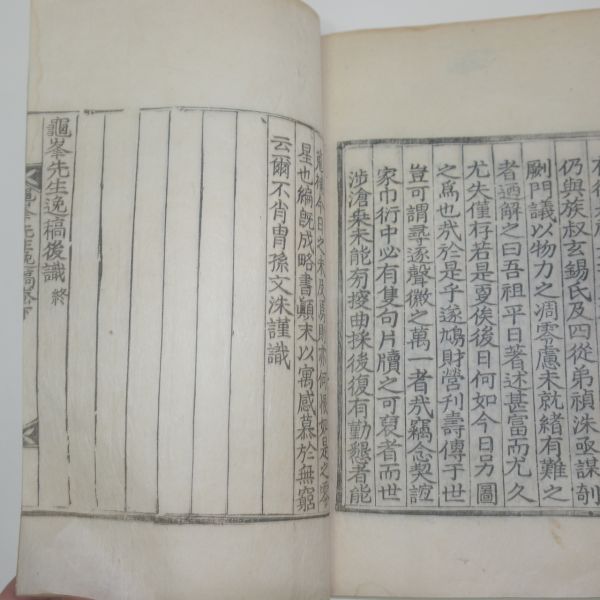 仍與族叔玄錫氏及四從弟禎洙亟謀剞
劂門議以物力之凋零慮未就緒有難之
者迺解之曰吾祖平日著述甚富而尤久
尤失僅存若是更俟後日何如今日另圖
之爲也哉於是乎遂鳩財營刊壽傳于世
豈可謂尋逐聲徽之萬一者哉竊念契誼
家巾衍中必有隻句片牘之可裒者而世
涉滄桑未能旁搜曲採後復有勤懇者能
星也編旣成略書顚末以寓感慕於無窮
云爾不肖胄孫文洙謹識
龜峯先生逸稿後識 終
龜峯先生逸稿